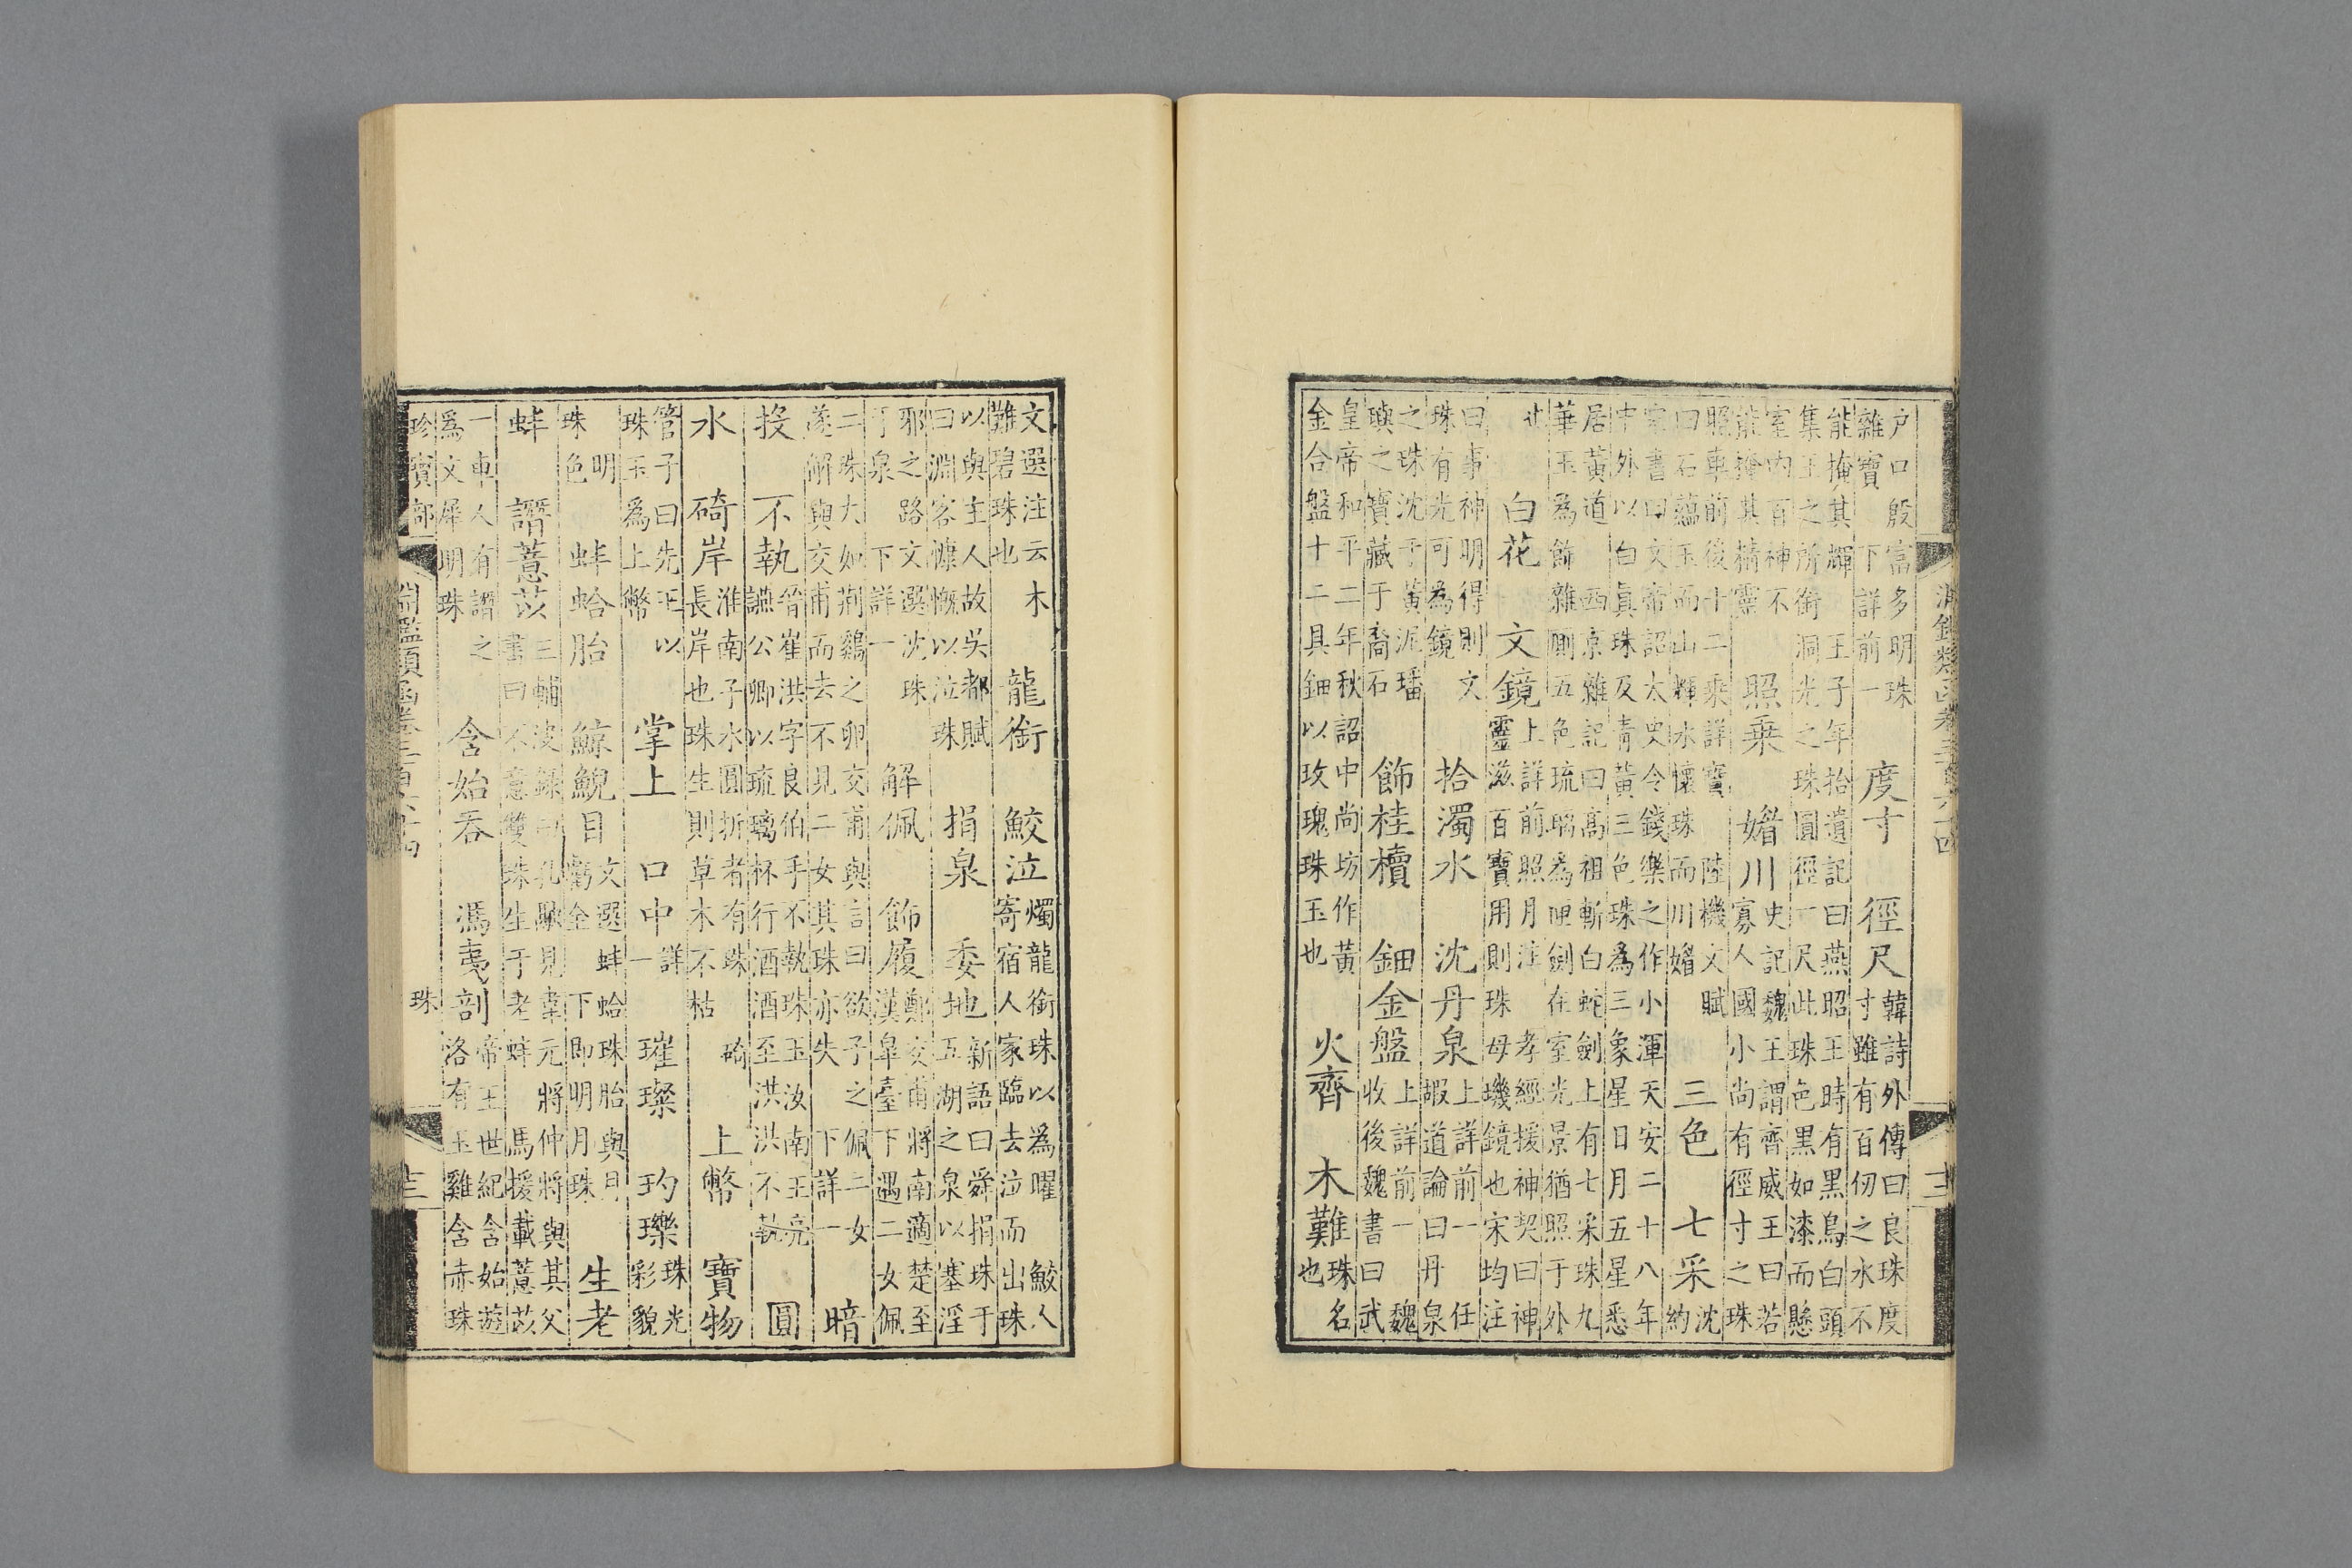 淵鑑類函卷三百六十四
户口殷富多明珠
雜寶 下詳前一
度寸 徑尺
韓詩外傳曰良珠度
寸雖有百仞之水不
能掩其輝 王子年拾遺記曰燕昭王時有黑鳥白頭
集王之所銜洞光之珠圓徑一尺此珠色黑如漆而懸
室內百神不
能掩其精靈
照乘 媚川
史記魏王謂齊威王曰若
寡人國小尚有徑寸之珠
照車前後十二乘詳寶 陸機文賦
曰石蘊玉而山輝水懷珠而川媚
三色 七采
沈
約
宋書曰文帝詔太史令錢樂之作小渾天安二十八年
中外以白真珠及青黃三色珠為三象星日月五星悉
居黃道 西京雜記曰高祖斬白蛇劍上有七采珠九
華玉為飾雜厠五色琉璃為匣劍在室光景猶照于外
白花 文鏡
上詳前照月注 孝經援神契曰神
靈滋百寶用則珠母璣鏡也宋均注
曰事神明得則文
珠有光可為鏡
拾濁水 沈丹泉
上詳前一 任
嘏道論曰丹泉
之珠沈于黃泥璠
璵之寶藏于裔石
飾桂櫝 鈿金盤
上詳前一 魏
收後魏書曰武
皇帝和平二年秋詔中尚坊作黃
金合盤十二具鈿以玫瑰珠玉也
火齊 木難
珠名
也
文選注云 木
難碧珠也
龍銜 鮫泣
燭龍銜珠以為曜 鮫人
寄宿人家臨去泣而出珠
以與主人故吳都賦
曰淵客慷慨以泣珠
捐泉 委地
新語曰舜捐珠于
五湖之泉以塞淫
邪之路文選沈珠
于泉 下詳一
解佩 飾履
鄭交甫將南適楚至
漢皐臺下遇二女佩
二珠大如荆鷄之卵交甫與言曰欲子之佩二女
遂解與交甫而去不見二女其珠亦失 下詳一
暗
投 不執
晉崔洪字良伯手不執珠玉汝南王亮
讌公卿以琉璃杯行酒酒至洪洪不執
圓
水 碕岸
淮南子水圓折者有珠 碕
長岸也珠生則草木不枯
上幣 寶物
管子曰先王以
珠玉為上幣
掌上 口中
詳
一
璀璨 玓瓅
珠光
彩貌
明
珠色
蚌蛤胎 鯨鯢目
文選蚌蛤珠胎與月
虧全 下即明月珠
生老
蚌 譖薏苡
三輔決録曰孔融見韋元將仲將與其父
書曰不意雙珠生于老蚌 馬援載薏苡
一車人有譖之
為文犀明珠
含始吞 馮夷剖
帝王世紀含始遊
洛有玉雞含赤珠
珍寶部 淵鑑類函卷三百六十四 珠